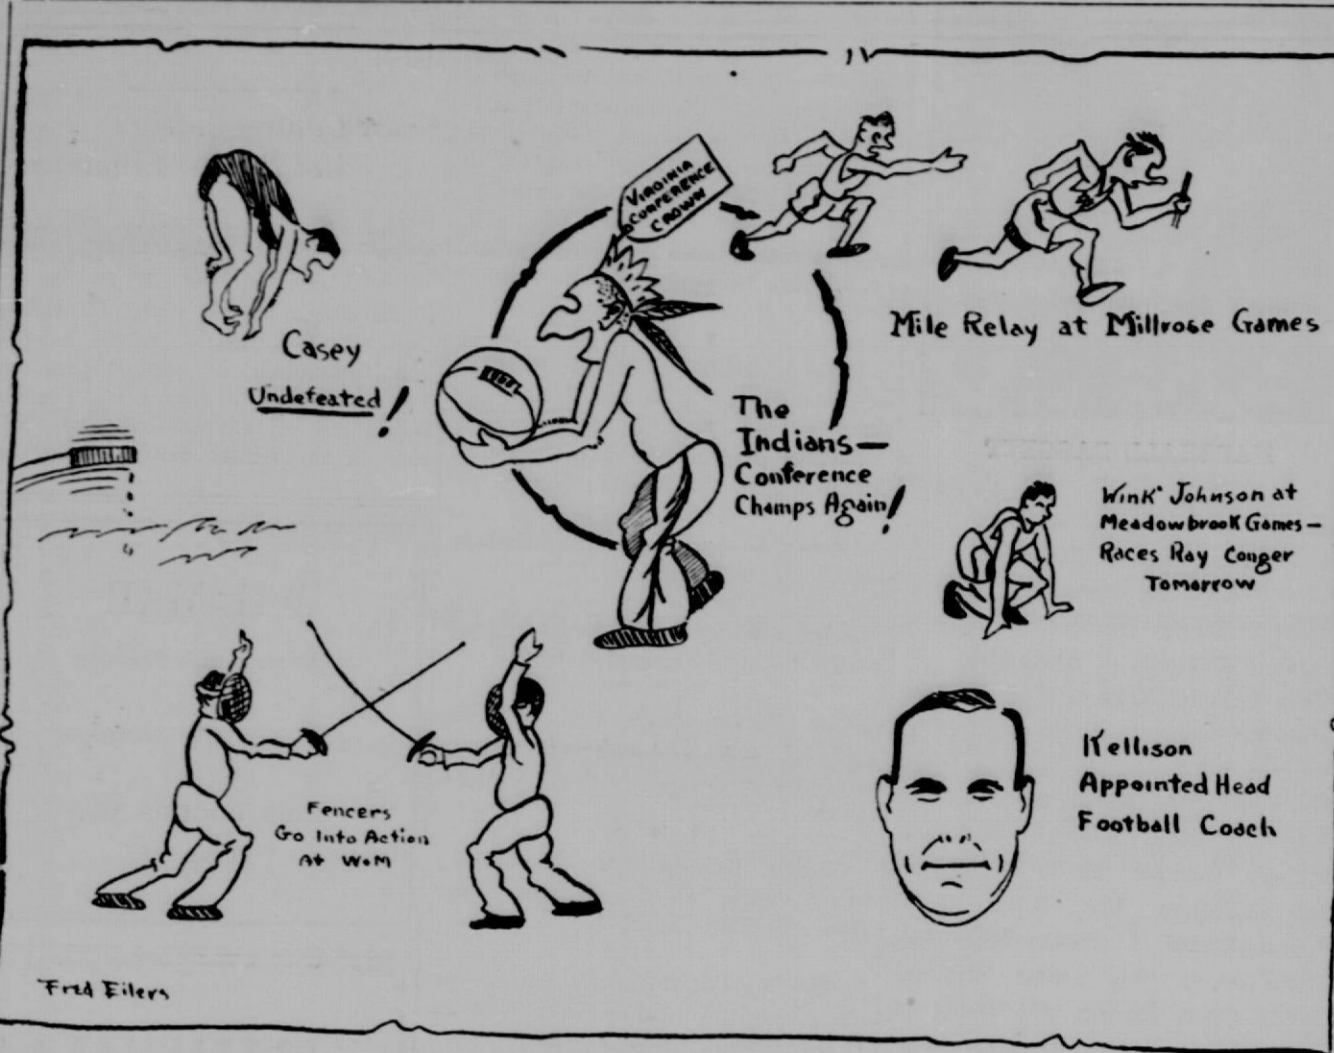 VIRGINIA
CONFERENCE
CROWN
Casey
Undefeated!
Mile Relay at Millrose Games
The
Indians—
Conference
Champs Again!
"Wink" Johnson at
Meadowbrook Games—
Races Ray Conger
Tomorrow
Fencers
Go Into Action
At W&M
Kellison
Appointed Head
Football Coach
Fred Eilers